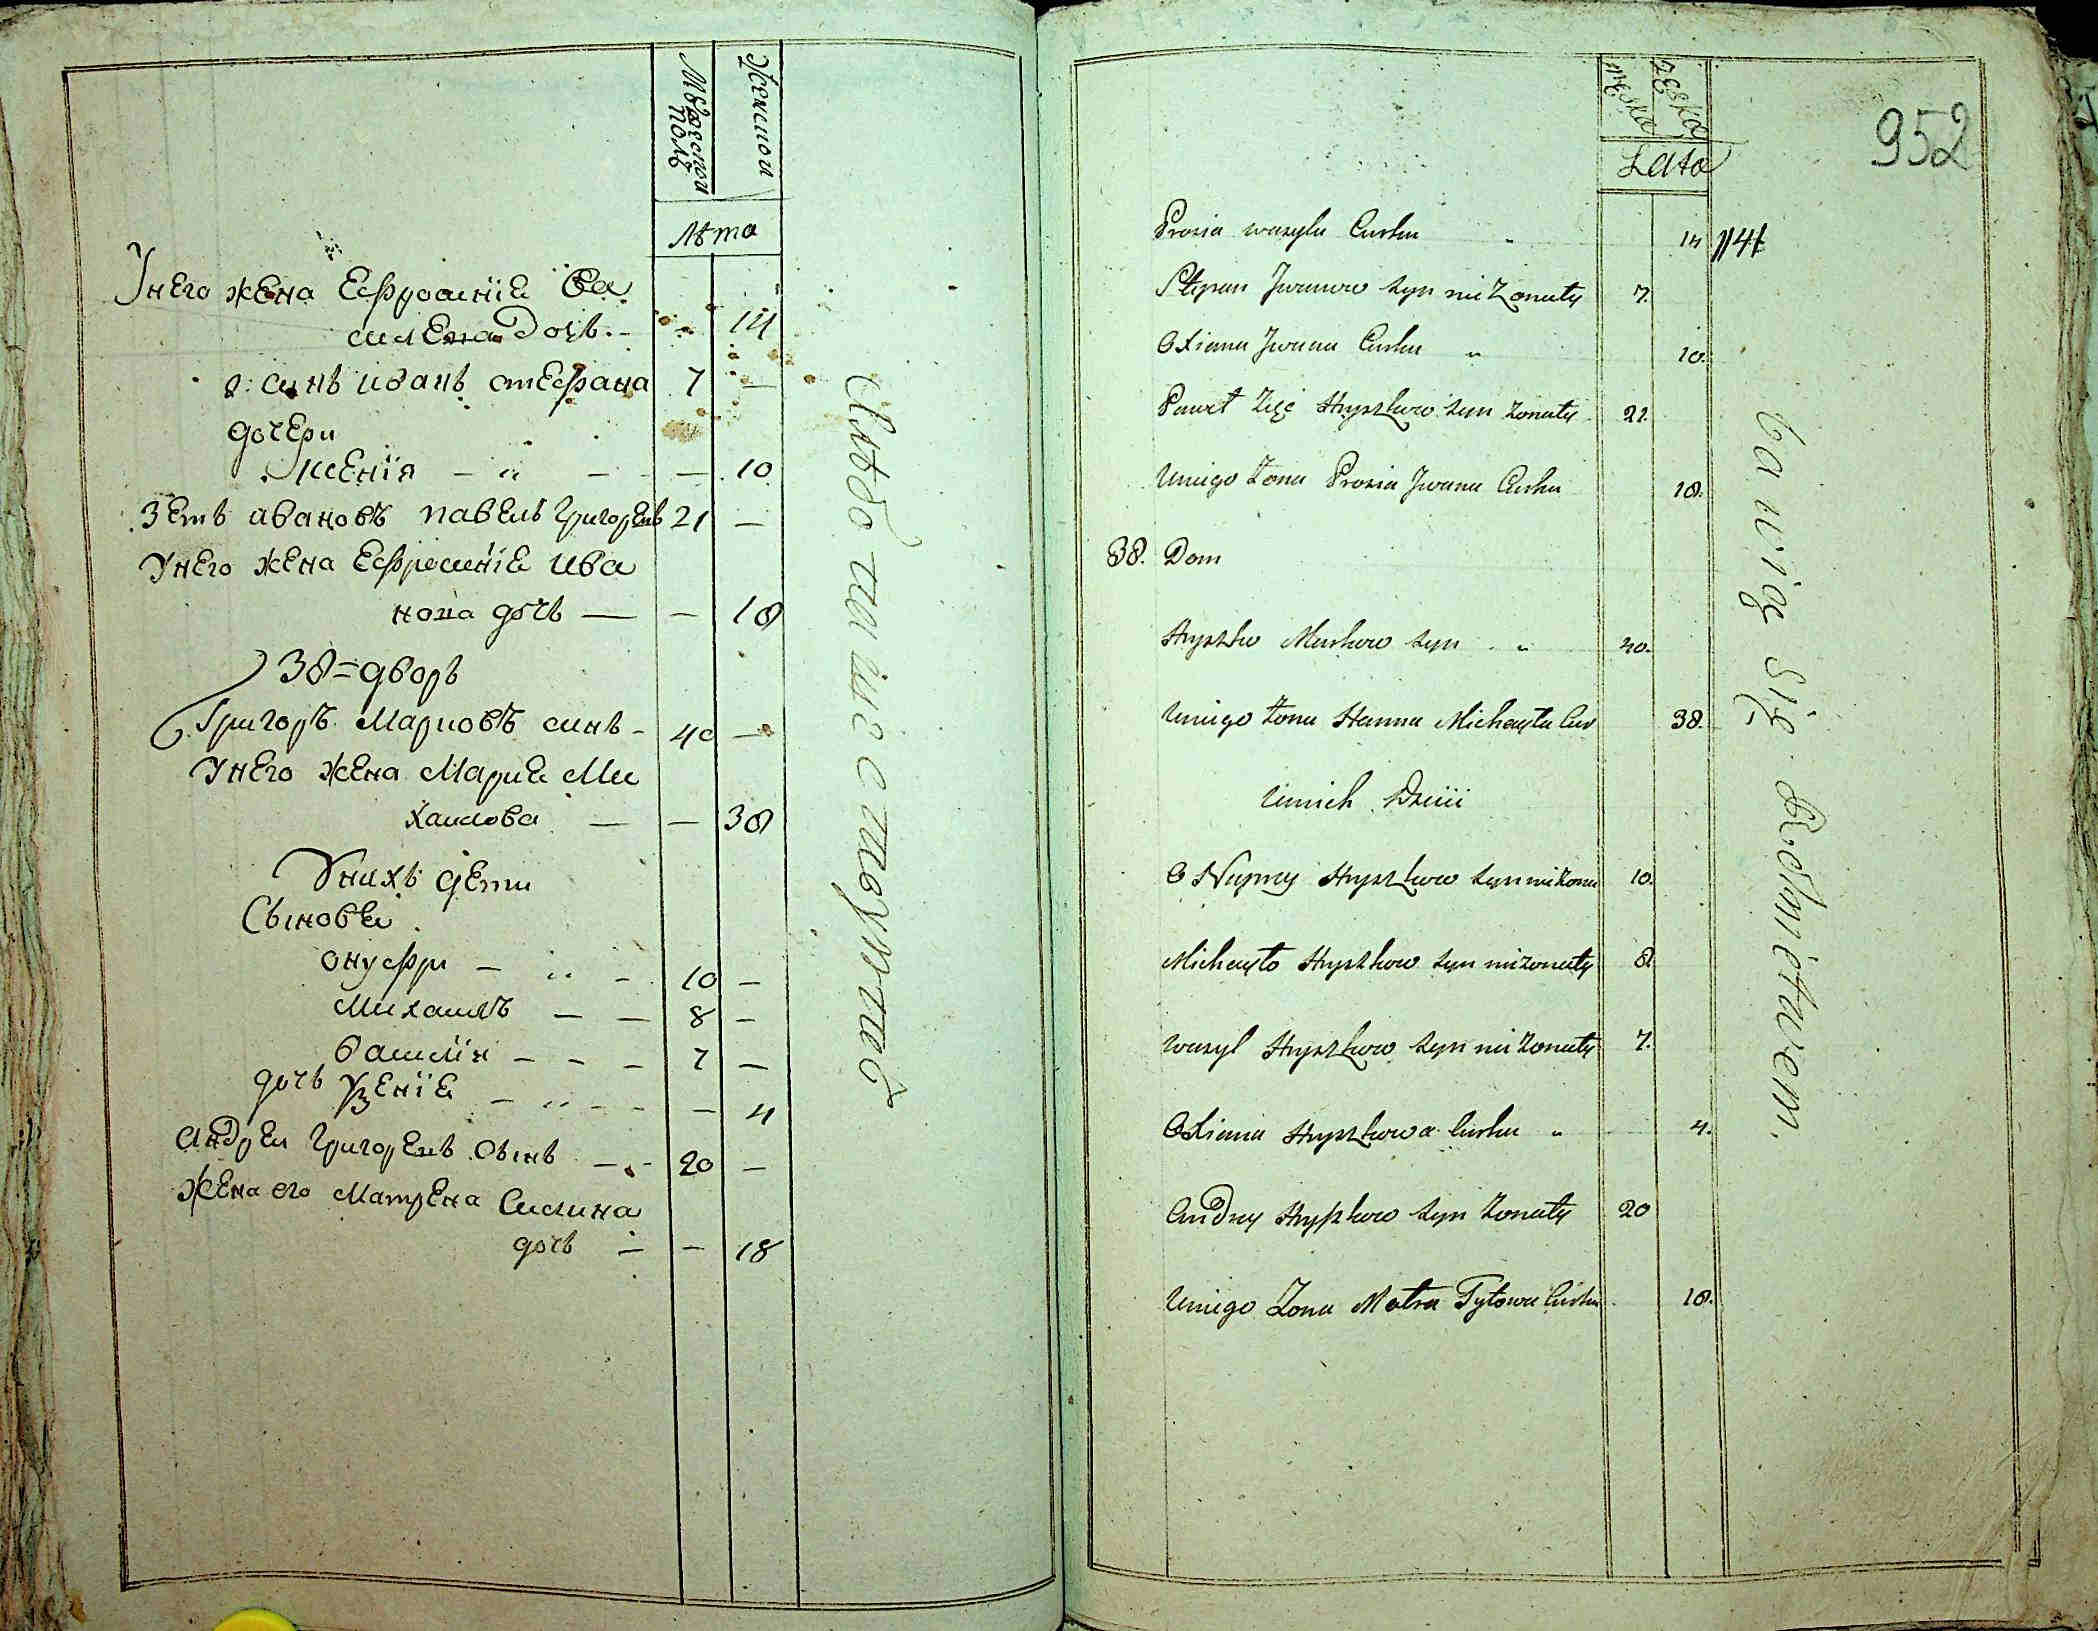 Мужескои
полъ
Женскои
Лѣта
У него жена Ефросиніе Ва
силева дочь - - 14
2: синъ иванъ стефана 7 —
дочери
Ксенія — „ — — 10
Зеть ивановъ павелъ Григорев 21 —
У него жена Ефросиніе Ива
нова дочь — — 18
38 = дворъ
Григоръ Марковъ синъ - 40 —
У него жена Марие Ми
хаилова — — 38
У нихъ дети
Сыновеи
онуфри — „ - 10 —
Михаилъ — — 8 —
василіи — — 7 —
дочь Узеніе — „ - - — 4
Андреи Григоревъ сынъ — - 20 —
Жена его Матрена Силина
дочь — — 18
męska
żęska
Lata
952
Prosia wasyla Curka „ 14 114
Stepan Jwanow syn nie Zonaty 7.
Oxiana Jwana Curka „ 10.
Paweł Zięc Hryszkow syn zonaty 21.
U niego Zona Prosia Jwana Curka 18.
38. Dom
Hryszko Markow syn „ 40.
U niego zona Hanna Michayła Cur 38.
U nich Dzieci
ONupry Hryszkow syn nie zona 10.
Michayło Hryszkow syn nie zonaty 8.
wasyl Hryszkow syn nie zonaty 7.
Oxiana Hryszkowa Curka „ 4.
Andrey Hryszkow syn zonaty 20
U niego Zona Matra Tytowa Curka 18.